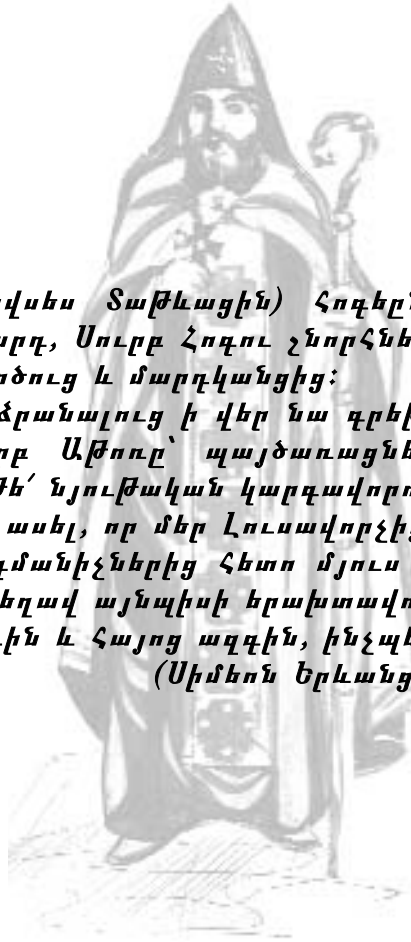 վսես Տաթևացին) Հոգեըն
արդ, Սուրբ Հոգու շնորհնե
րծուց և մարդկանցից:
ձրանալուց ի վեր նա գրել
որբ Աթոռը՝ պայծառացնե
թե՛ նյութական կարգավորո
ասել, որ մեր Լուսավորչի
գմանիչներից հետո մյուս
եղավ այնպիսի երախտավո
ին և Հայոց ազգին, ինչպե
(Սիմեոն Երևանց